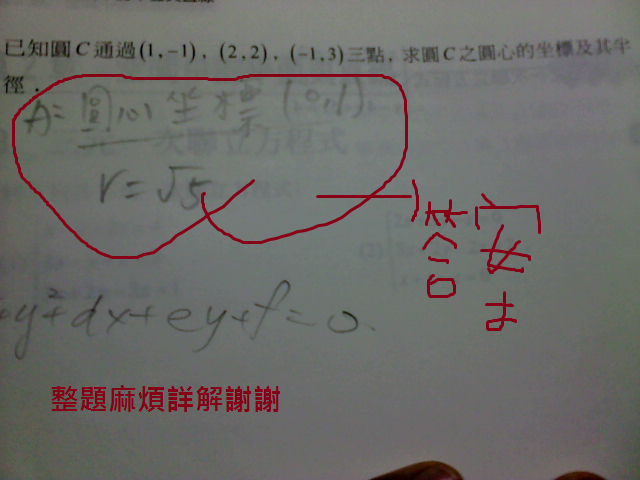 已知圓C通過(1,-1),(2,2),(-1,3)三點,求圓C之圓心的坐標及其半
徑.
A= 圓心坐標 (0,1)
次聯立方程式
r=√5
答案
+y²+dx+ey+f=0.
整題麻煩詳解謝謝